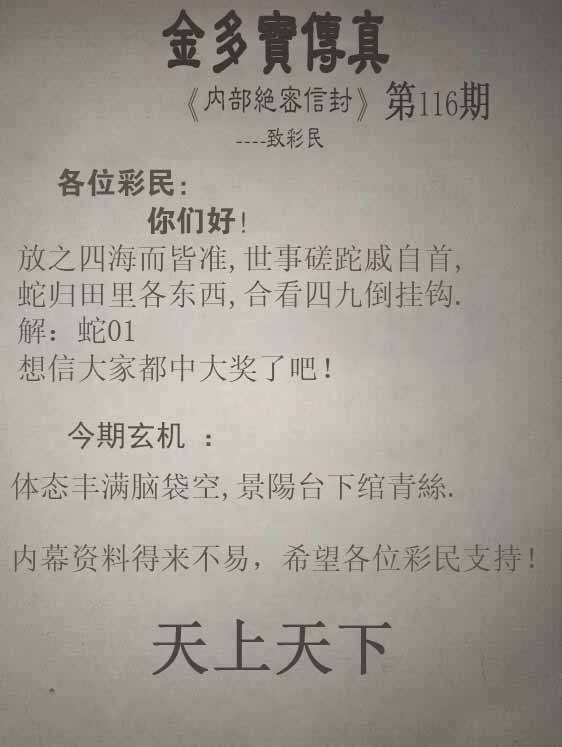 金多寶傳真
《内部絕密信封》第116期
----致彩民
各位彩民:
你们好!
放之四海而皆准,世事磋跎戚自首,
蛇归田里各东西,合看四九倒挂钩.
解：蛇01
想信大家都中大奖了吧！
今期玄机 ：
体态丰满脑袋空,景陽台下绾青絲.
内幕资料得来不易，希望各位彩民支持！
天上天下